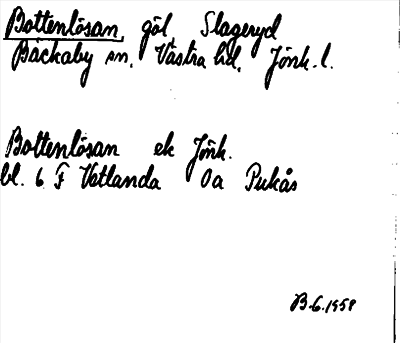 Bottenlösan, göl, Slageryd
Bäckaby sn, Västra hd. Jönk.l.
Bottenlösan ek Jönk.
bl. 6 F Vetlanda 0a Pukås
B.G.1958